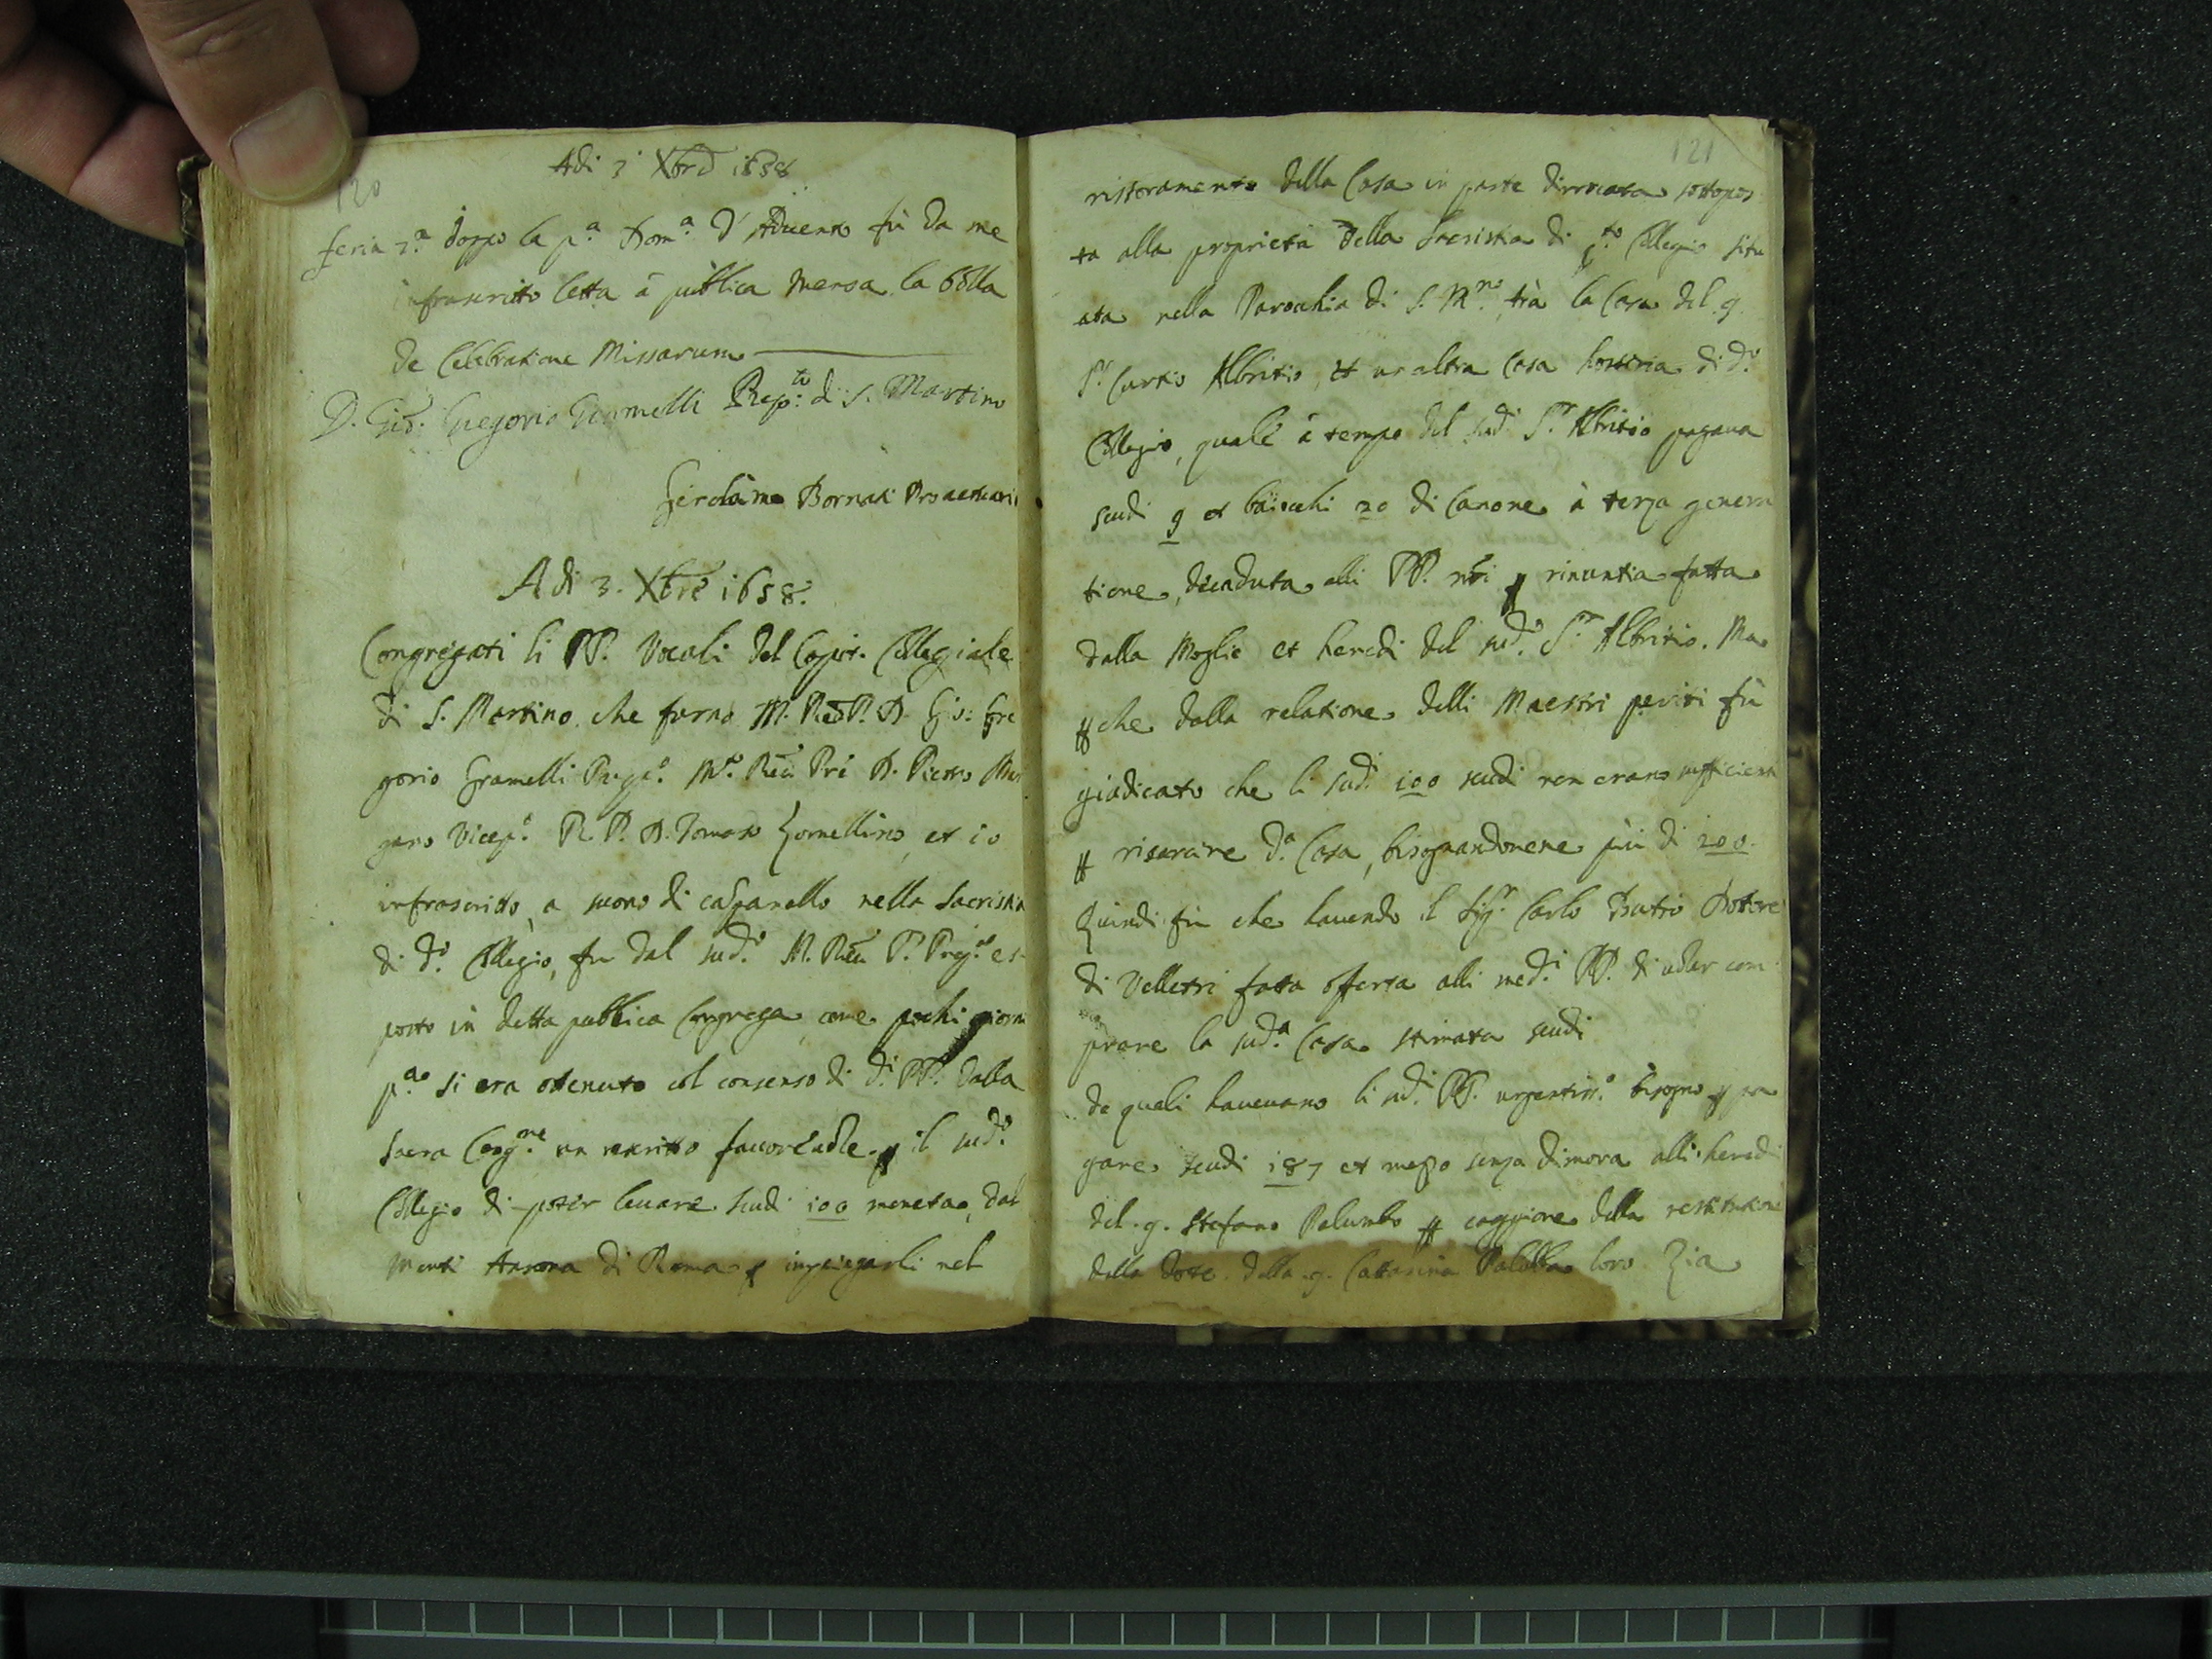 120
Adi 3 Xbre 1658
feria 3.a doppo la p.a Dom.a d'Aduento fù da me
infrascritto letta à publica mensa la bolla
de Celebratione Missarum
D. Gio: Gregorio Gramelli Prep:to di S. Martino
Girolamo Bornati Proattuari
Adi 3. Xbre 1658.
Congregati li PP. Vocali del Capit. Collegiale
di S. Martino che furno M. Red P. D. Gio: Gre
gorio Gramelli Prep.o M.o Reu. Pre D. Pietro
gano Vicep.o R. P. D. Tomaso Gomellino, et io
infrascritto, a suono di campanello nella Sacristia
di d.o Collegio, fu dal sud.o M. Reu. P. Prep.o es-
posto in detta publica Congrega, come pochi giorni
p.a si era ottenuto col consenso di d.i PP. dalla
Sacra Cong.ne un rescritto fauoreuole p il sud.o
Collegio di poter leuare scudi 100 moneta, dal
Monti Annona di Roma p impiegarli nel
121
ristoramento della Casa in parte dirrocata sottopos
ta alla proprietà della Sacristia di q.to Collegio situ
ata nella Parochia di S. M.no, trà la Casa del q.
S.r Curtio Albritio, et un altra Casa hosteria di d.o
Collegio, quale à tempo del sud.o S.r Albritio pagaua
scudi 9 et baiocchi 20 di Canone à terza genera
tione, decaduta alli PP. nri p rinuntia fatta
dalla Moglie et heredi del sud.o S.r Albritio. Ma
pche dalla relatione delli Maestri periti fù
giudicato che li sud.i 100 scudi non erano sufficienti
p risarcire d.a Casa, bisognandouene più di 200.
Quindi fu che hauendo il Sig.r Carlo Dottore
di Velletri fatta offerta alli med.i PP. di uoler com
prare la sud.a Casa stimata scudi
de quali haueuano li sud.i PP. urgentiss.o bisogno p pa
gare scudi 187 et mezzo senza dimora alli heredi
del q. Stefano Palumbo p caggione della restitutione
della dote della q. Cattarina loro Zia